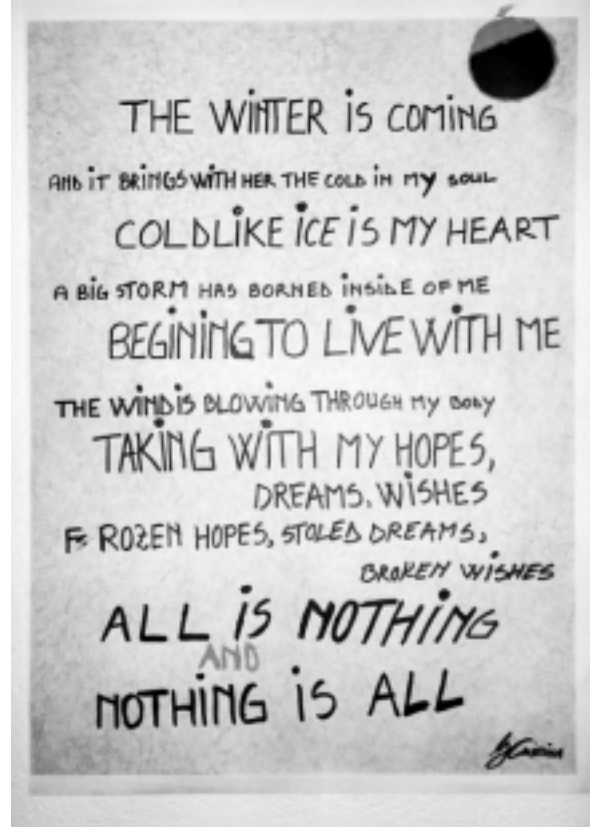 THE WINTER iS COMiNG
AND iT BRiNGS WiTH HER THE COLD iN MY SOUL
COLDLiKE iCE iS MY HEART
A BiG STORM HAS BORNED iNSiDE OF ME
BEGiNiNG TO LiVE WiTH ME
THE WiND iS BLOWiNG THROUGH MY BODY
TAKiNG WiTH MY HOPES,
DREAMS, WiSHES
FROZEN HOPES, STOLED DREAMS,
BROKEN WiSHES
ALL iS NOTHiNG
AND
NOTHiNG iS ALL